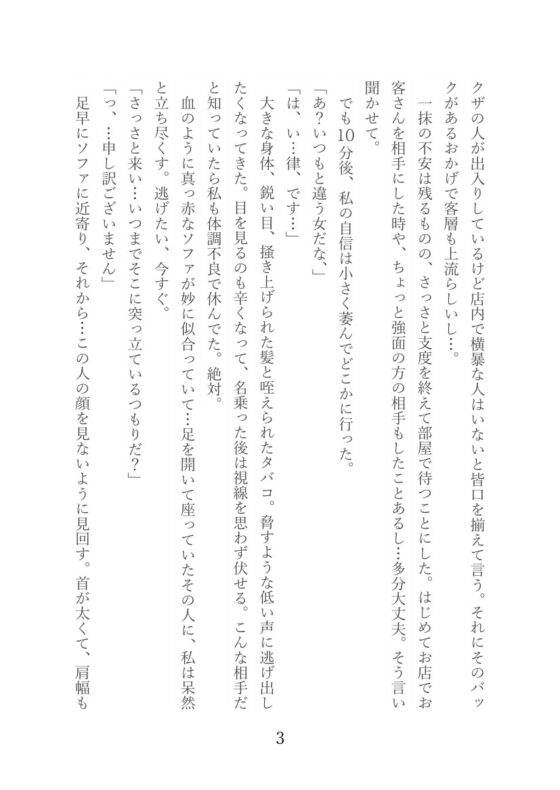 クザの人が出入りしているけど店内で横暴な人はいないと皆口を揃えて言う。それにそのバッ
クがあるおかげで客層も上流らしいし…。
一抹の不安は残るものの、さっさと支度を終えて部屋で待つことにした。はじめてお店でお
客さんを相手にした時や、ちょっと強面の方の相手もしたことあるし…多分大丈夫。そう言い
聞かせて。
でも10分後、私の自信は小さく萎んでどこかに行った。
「あ？いつもと違う女だな、」
「は、い…律、です…」
大きな身体、鋭い目、掻き上げられた髪と咥えられたタバコ。脅すような低い声に逃げ出し
たくなってきた。目を見るのも辛くなって、名乗った後は視線を思わず伏せる。こんな相手だ
と知っていたら私も体調不良で休んでた。絶対。
血のように真っ赤なソファが妙に似合っていて…足を開いて座っていたその人に、私は呆然
と立ち尽くす。逃げたい、今すぐ。
「さっさと来い…いつまでそこに突っ立ているつもりだ？」
「っ、…申し訳ございません」
足早にソファに近寄り、それから…この人の顔を見ないように見回す。首が太くて、肩幅も
3